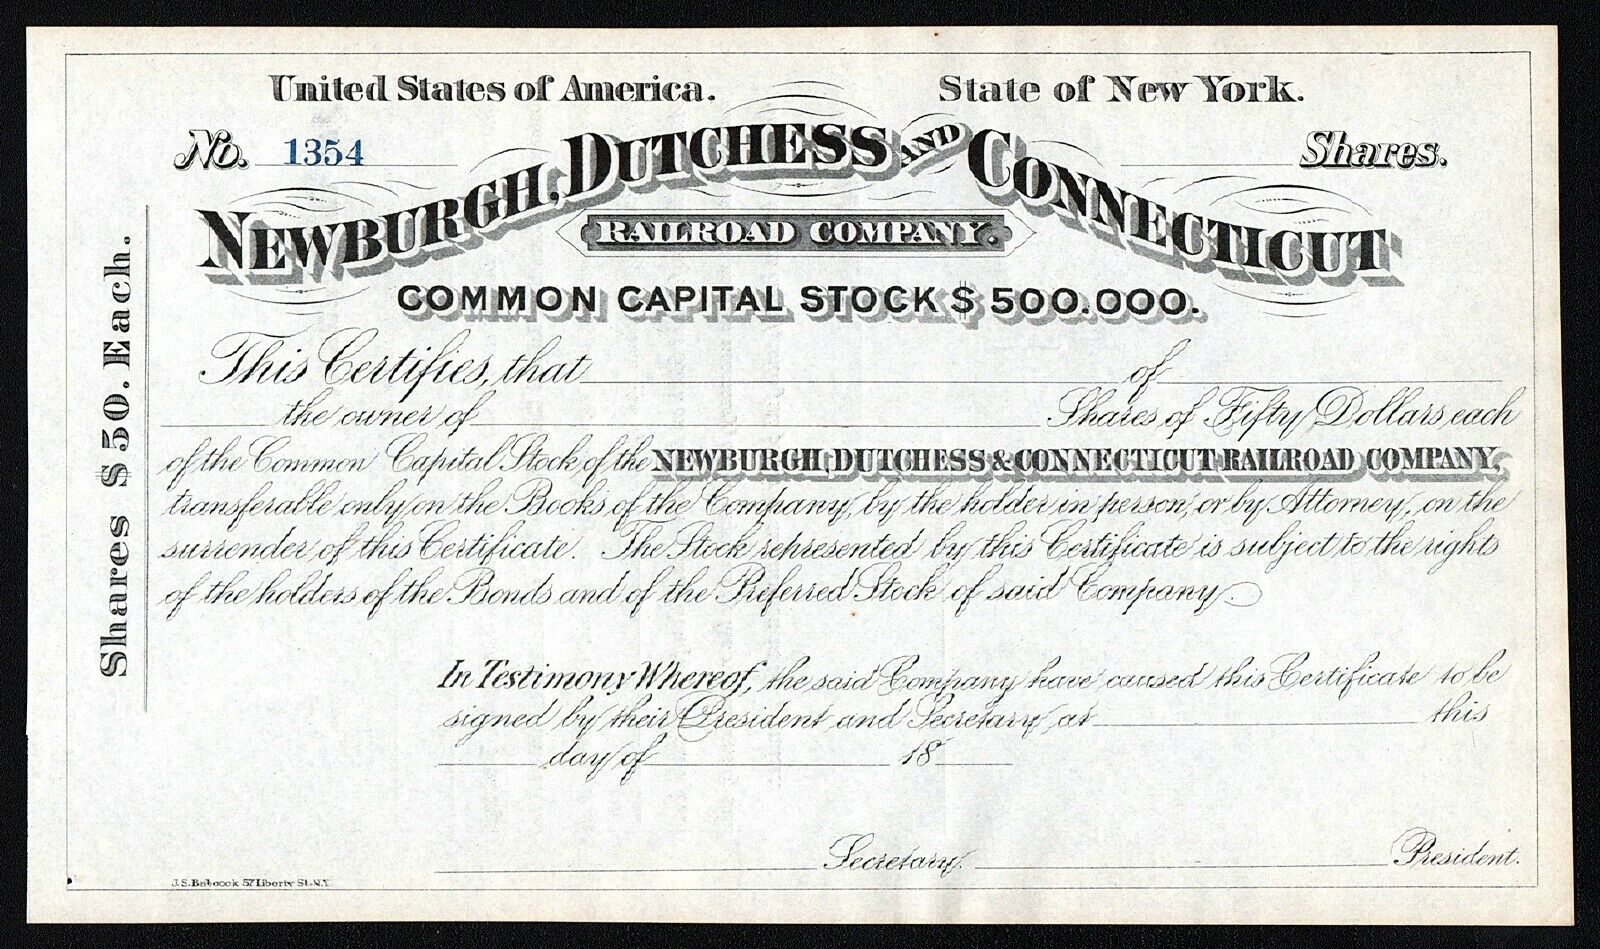 United States of America. State of New York.
No. 1354 Shares.
NEWBURGH, DUTCHESS AND CONNECTICUT
RAILROAD COMPANY.
COMMON CAPITAL STOCK $ 500.000.
Shares $50. Each.
This Certifies, that of
the owner of Shares of Fifty Dollars each
of the Common Capital Stock of the NEWBURGH, DUTCHESS & CONNECTICUT RAILROAD COMPANY,
transferable only on the Books of the Company, by the holder in person, or by Attorney, on the
surrender of this Certificate. The Stock represented by this Certificate is subject to the rights
of the holders of the Bonds and of the Preferred Stock of said Company.
In Testimony Whereof, the said Company have caused this Certificate to be
signed by their President and Secretary, at this
day of 18
Secretary. President.
J.S. Babcock 57 Liberty St. N.Y.